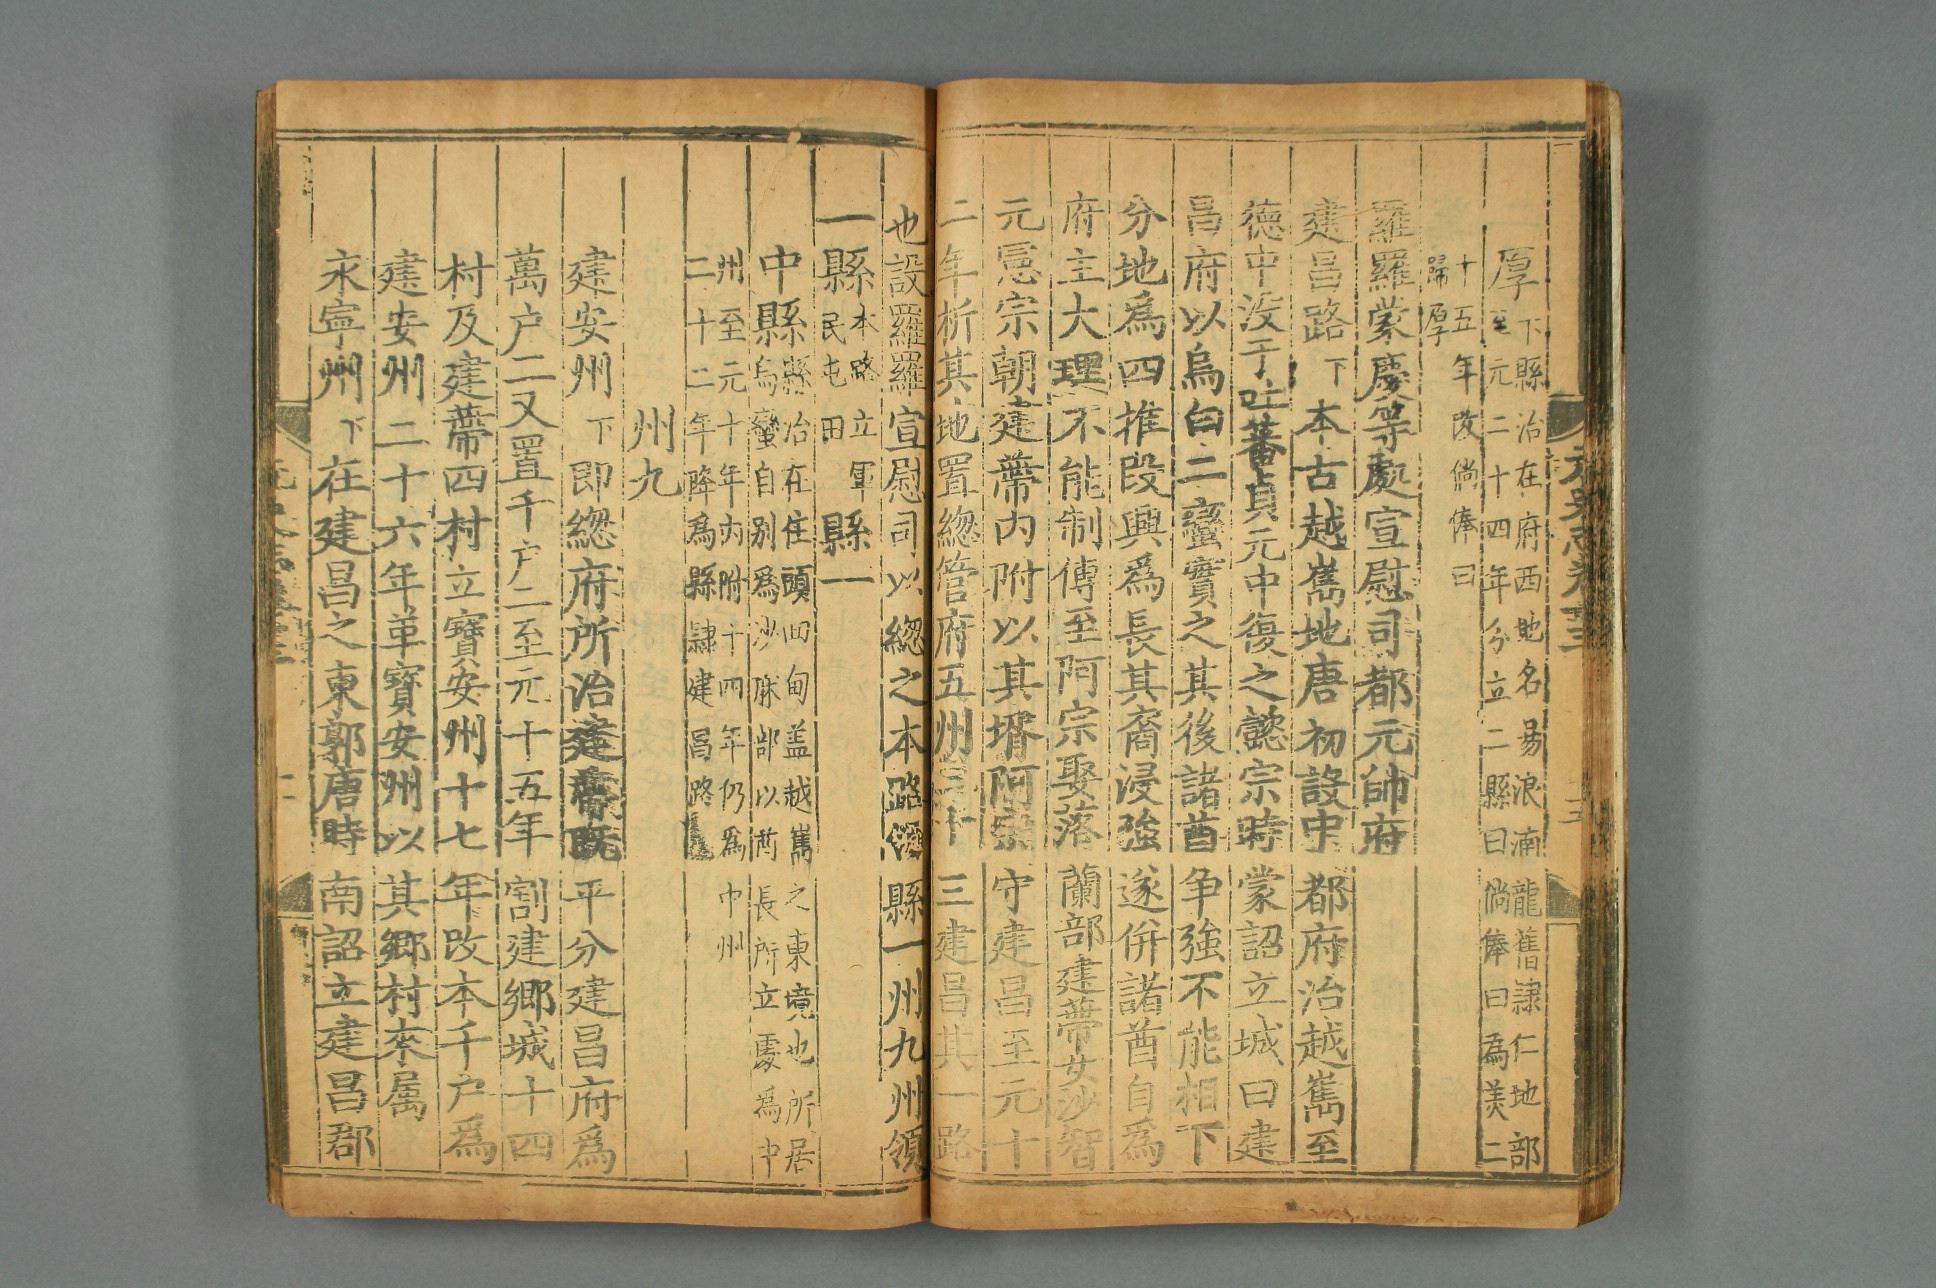 元史志卷十三
厚下縣治在府西地名易浪湳龍舊隷仁地部
至元二十四年分立二縣曰倘俸曰為美二
十五年改倘俸曰
歸厚
羅羅蒙慶等處宣慰司都元帥府
建昌路下本古越巂地唐初設中都府治越巂至
德中没于吐蕃貞元中復之懿宗時蒙詔立城曰建
昌府以烏白二蠻實之其後諸酋争強不能相下
分地爲四推段興爲長其裔浸強遂併諸酋自爲
府主大理不能制傳至阿宗娶落蘭部建蒂女沙智
元憲宗朝建蒂内附以其壻阿宗守建昌至元十
二年析其地置緫管府五州二十三建昌其一路
也設羅羅宣慰司以緫之本路領縣一州九州領
一縣本路立軍
民屯田
縣一
中縣縣治在住頭回甸盖越巂之東境也所居
烏蠻自别爲沙麻部以酋長所立處為中
州至元十年内附十四年仍爲中州
二十二年降爲縣隷建昌路
州九
建安州下即緫府所治建蒂既平分建昌府爲
萬户二又置千户二至元十五年割建鄉城十四
村及建蒂四村立寳安州十七年改本千户爲
建安州二十六年革寳安州以其鄉村來屬
永寧州下在建昌之東郭唐時南詔立建昌郡